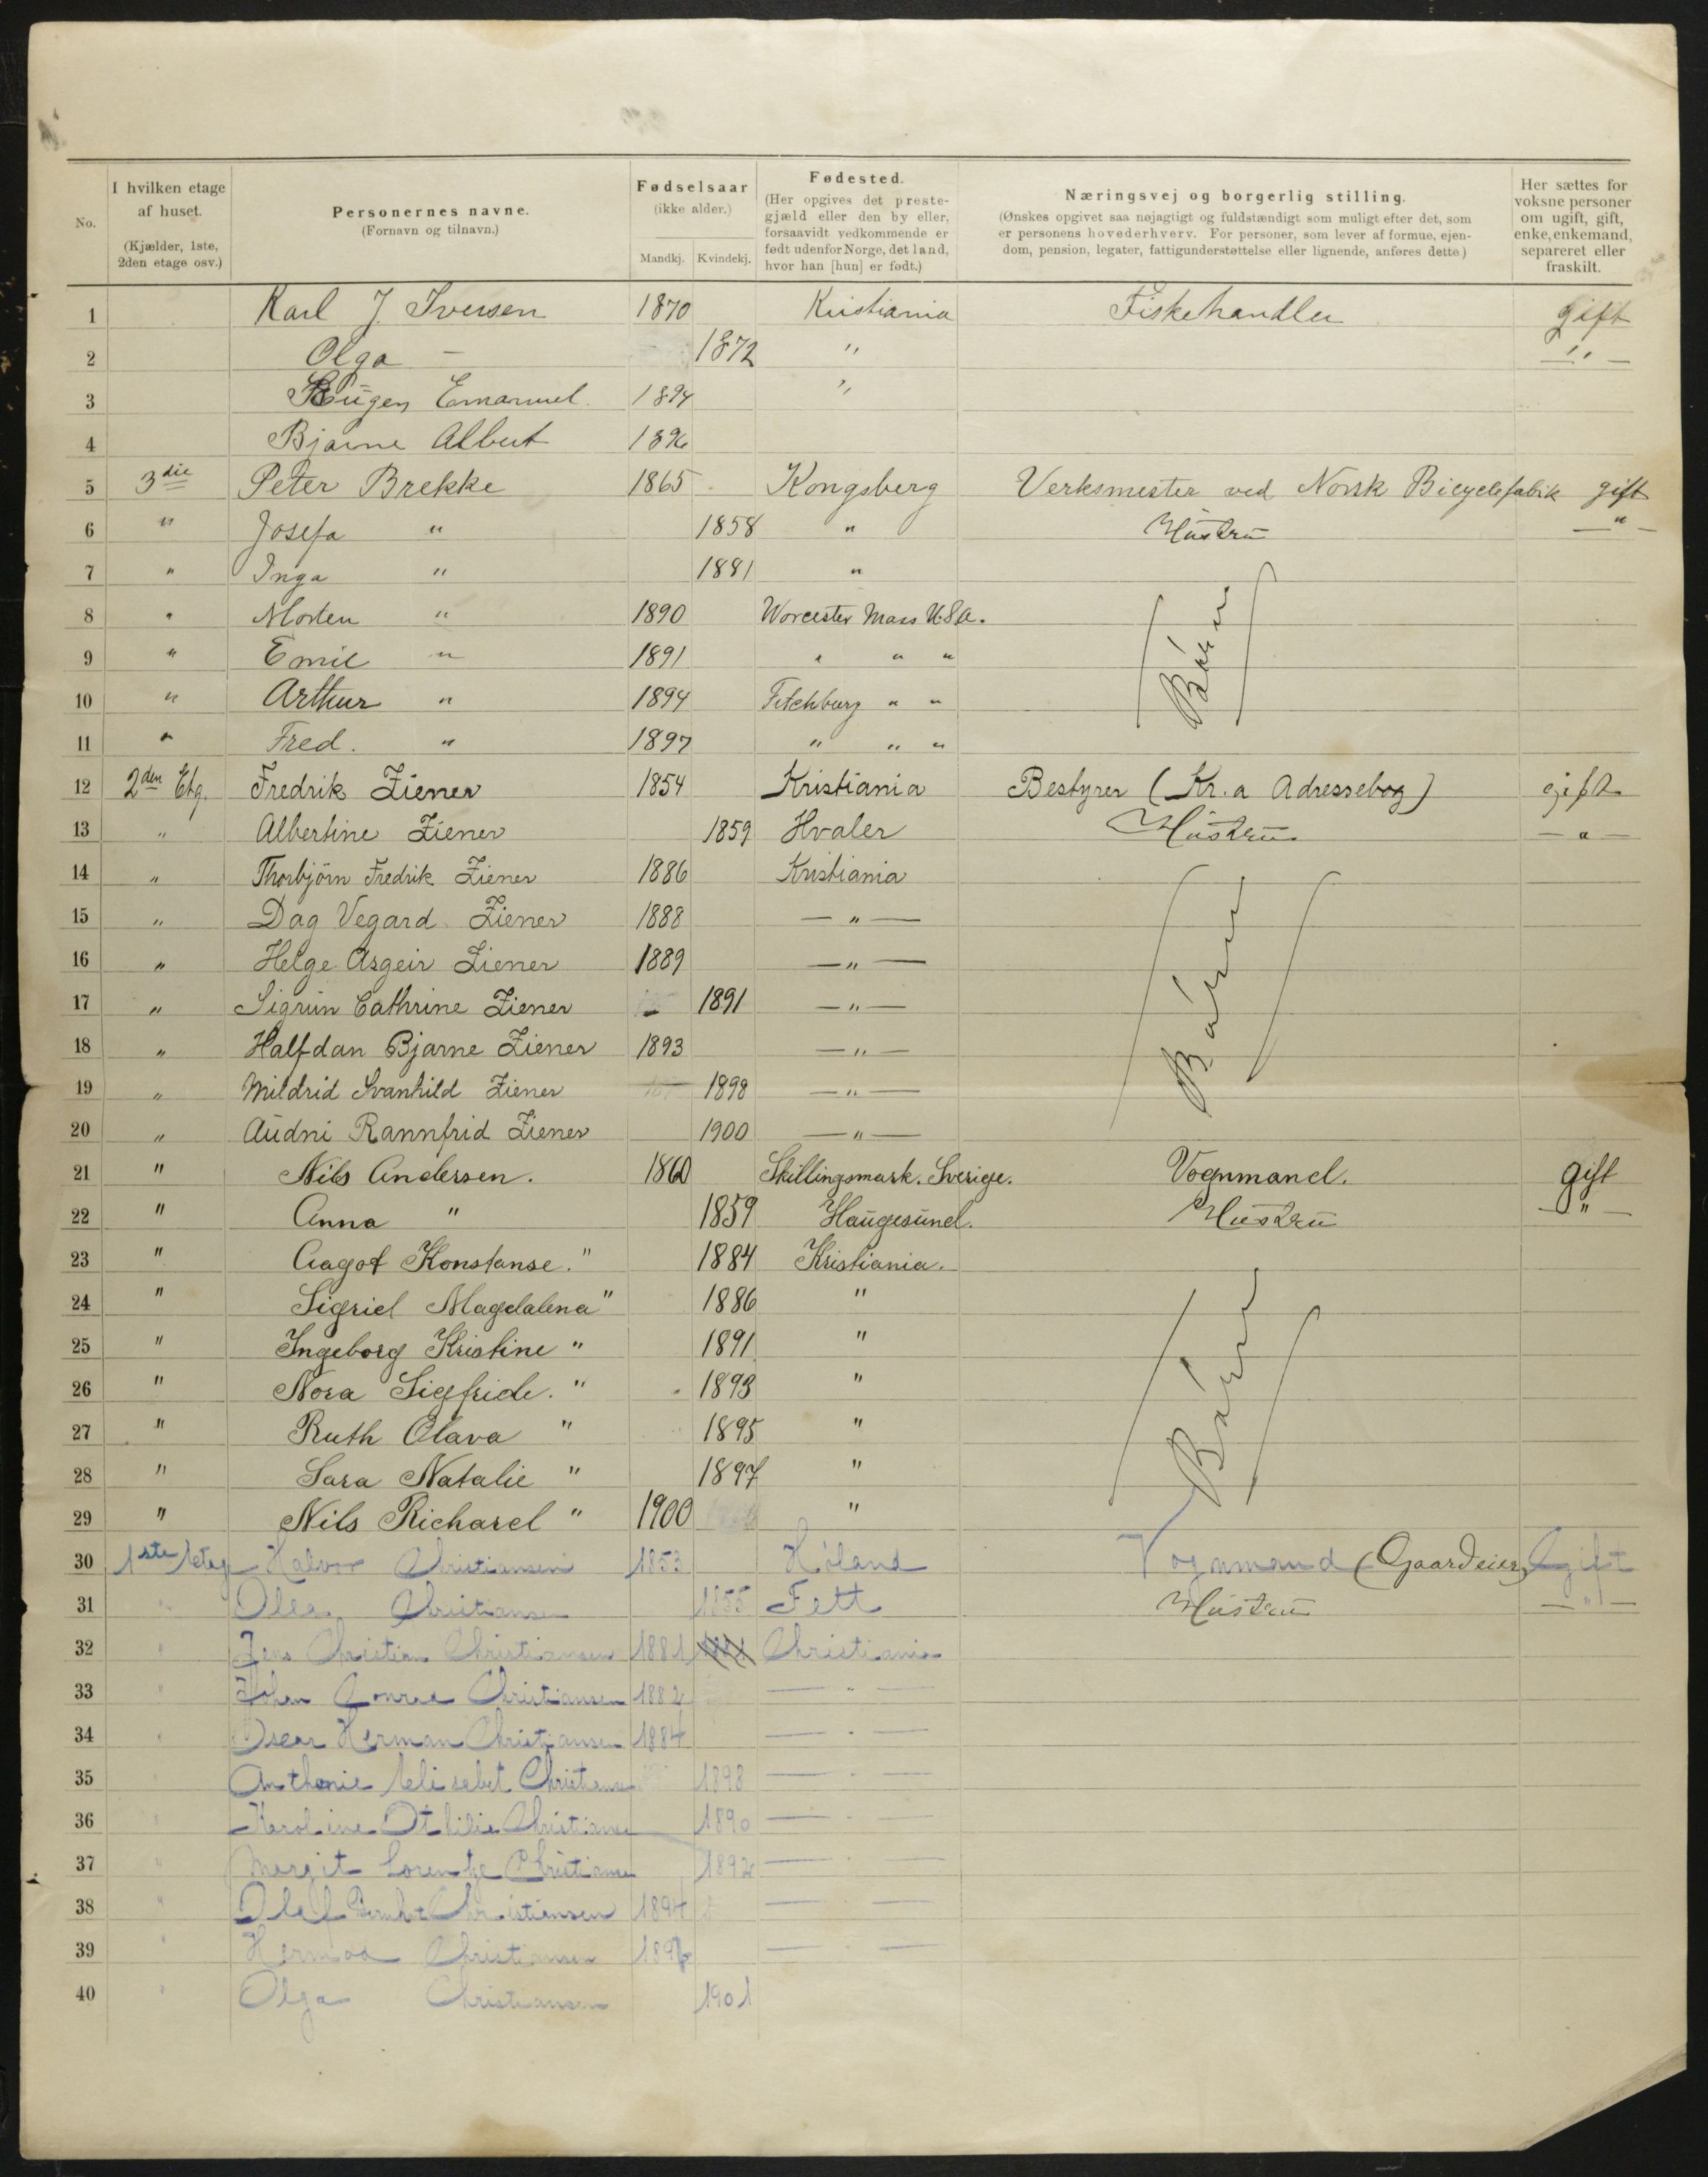 No.
I hvilken etage af huset.
(Kjælder, 1ste, 2den etage osv.)
Personernes navne.
(Fornavn og tilnavn.)
Fødselsaar
(ikke alder.)
Mandkj. Kvindekj.
Fødested.
(Her opgives det prestegjæld eller den by eller, forsaavidt vedkommende er født udenfor Norge, det land, hvor han [hun] er født.)
Næringsvej og borgerlig stilling.
(Ønskes opgivet saa nøjagtigt og fuldstændigt som muligt efter det, som er personens hovederhverv. For personer, som lever af formue, ejendom, pension, legater, fattigunderstøttelse eller lignende, anføres dette)
Her sættes for voksne personer om ugift, gift, enke, enkemand, separeret eller fraskilt.
1 Karl J. Iversen 1870 Kristiania Fiskehandler gift
2 Olga — 1872 " — " —
3 Eugen Emanuel 1894 "
4 Bjarne Albert 1896
5 3die Peter Brekke 1865 Kongsberg Verksmester ved Norsk Bicyclefabik gift
6 " Josefa " 1858 " Hustru — " —
7 " Inga " 1881 "
8 " Morten " 1890 Worcester Mass U.S.A. Børn
9 " Emil " 1891 " " "
10 " Arthur " 1894 Fitchburg " "
11 " Fred. " 1897 " " "
12 2den Etg. Fredrik Ziener 1854 Kristiania Bestyrer (Kr.a Adressebog) gift
13 " Albertine Ziener 1859 Hvaler Hustru — " —
14 " Thorbjörn Fredrik Ziener 1886 Kristiania
15 " Dag Vegard Ziener 1888 — " —
16 " Helge Asgeir Ziener 1889 — " — Børn
17 " Sigrun Cathrine Ziener 1891 — " —
18 " Halfdan Bjarne Ziener 1893 — " —
19 " Mildrid Svanhild Ziener 1898 — " —
20 " Audni Rannfrid Ziener 1900 — " —
21 " Nils Andersen. 1860 Skillingsmark. Sverige. Vognmand. gift
22 " Anna " 1859 Haugesund. Hustru — " —
23 " Aagot Konstanse. " 1884 Kristiania.
24 " Sigrid Magdalena " 1886 "
25 " Ingeborg Kristine " 1891 "
26 " Nora Sigfride. " 1893 " Børn
27 " Ruth Olava " 1895 "
28 " Sara Natalie " 1897 "
29 " Nils Richard " 1900 "
30 1ste Halvor Christiansen 1853 Høland Vognmand (Gaardeier) Gift
31 " Christiansen 1855 Fett Hustru — " —
32 " Jens Christian Christiansen 1881 Christiania
33 " Johan Conrad Christiansen 1882 — " —
34 " Oscar Herman Christiansen 1884 — " —
35 Anthonie Christianse 1898 — " —
36 " Karoline Othilie Christianse 1890 — " —
37 " Margit Lorentze Christianse 1892 — " —
38 " Olaf Christiansen 1894 — " —
39 " Christiansen 1896 — " —
40 " Olga Christiansen 1901